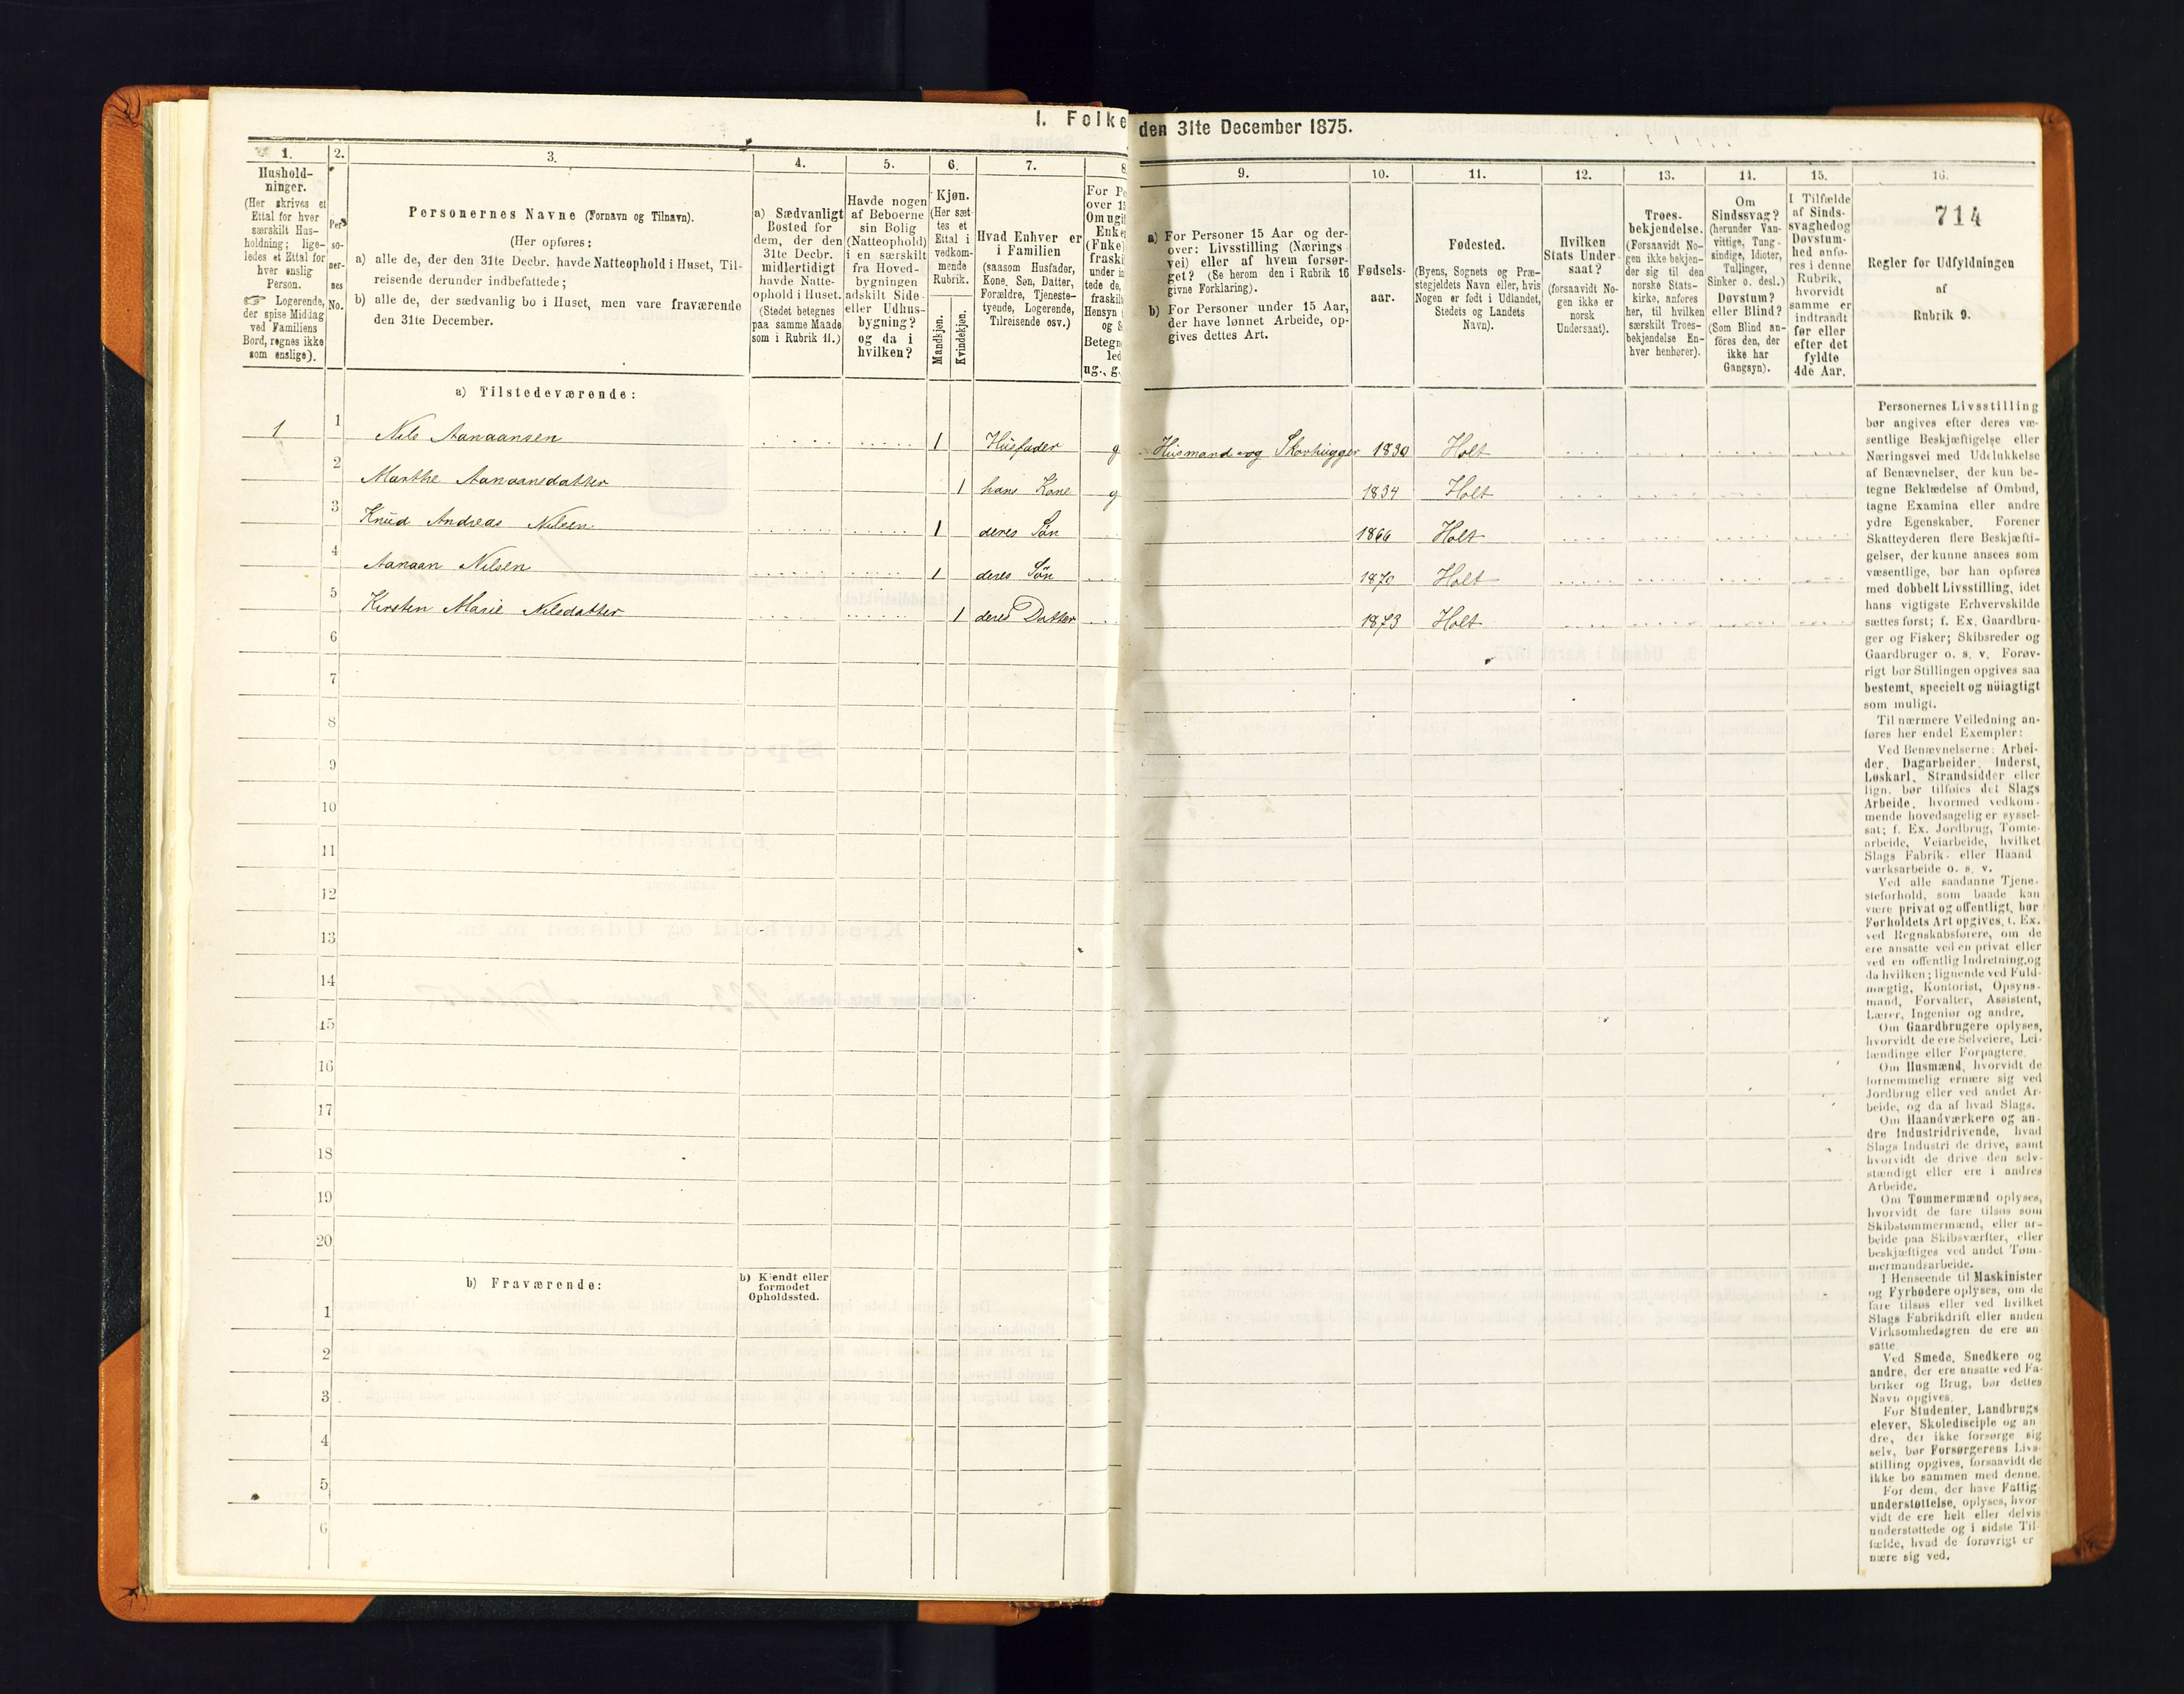 I. Folke
den 31te December 1875.
1.
Hushold-
ninger.
(Her skrives et
Ettal for hver
særskilt Hus-
holdning; lige-
ledes et Ettal for
hver enslig
Person.
☞ Logerende,
der spise Middag
ved Familiens
Bord, regnes ikke
som enslige).
2.
Per-
so-
ner-
nes
No.
3.
Personernes Navne (Fornavn og Tilnavn).
(Her opføres:
a) alle de, der den 31te Decbr. havde Natteophold i Huset, Til-
reisende derunder indbefattede;
b) alle de, der sædvanlig bo i Huset, men vare fraværende
den 31te December.
4.
a) Sædvanligt
Bosted for
dem, der den
31te Decbr.
midlertidigt
havde Natte-
ophold i Huset.
(Stedet betegnes
paa samme Maade
som i Rubrik 11.)
5.
Havde nogen
af Beboerne
sin Bolig
(Natteophold)
i en særskilt
fra Hoved-
bygningen
adskilt Side-
eller Udhus-
bygning?
og da i
hvilken?
6.
Kjøn.
(Her sæt-
tes et
Ettal i
vedkom-
mende
Rubrik.
Mandkjøn.
Kvindekjøn.
7.
Hvad Enhver er
i Familien
(saasom Husfader,
Kone, Søn, Datter,
Forældre, Tjeneste-
tyende, Logerende,
Tilreisende osv.)
8
For Pe
over 15
Om ugif
Enke
(Enke)
fraski
under in
tede de,
fraskilt
Hensyn
og S
Betegn
led
ug., g.
9.
a) For Personer 15 Aar og der-
over: Livsstilling (Nærings
vei) eller af hvem forsør-
get? (Se herom den i Rubrik 16
givne Forklaring).
b) For Personer under 15 Aar,
der have lønnet Arbeide, op-
gives dettes Art.
10.
Fødsels-
aar.
11.
Fødested.
(Byens, Sognets og Præ-
stegjeldets Navn eller, hvis
Nogen er født i Udlandet,
Stedets og Landets
Navn).
12.
Hvilken
Stats Under-
saat?
(forsaavidt No-
gen ikke er
norsk
Undersaat).
13.
Troes-
bekjendelse.
(Forsaavidt No-
gen ikke bekjen-
der sig til den
norske Stats-
kirke, anføres
her, til hvilken
særskilt Troes-
bekjendelse En-
hver henhører).
14.
Om
Sindssvag?
(herunder Van-
vittige, Tung-
sindige, Idioter,
Tullinger,
Sinker o. desl.)
Døvstum?
eller Blind?
(Som Blind an-
føres den, der
ikke har
Gangsyn).
15.
I Tilfælde
af Sinds-
svaghed og
Døvstum-
hed anfø-
res i denne
Rubrik,
hvorvidt
samme er
indtraadt
før eller
efter det
fyldte
4de Aar.
16.
714
Regler for Udfyldningen
af
Rubrik 9.
a) Tilstedeværende:
1 1 Nils Aanaansen 1 Husfader g Husmand og Skovhugger 1830 Holt
2 Marthe Aanaansdatter 1 hans Kone g 1834 Holt
3 Knud Andreas Nilsen 1 deres Søn 1866 Holt
4 Aanaan Nilsen 1 deres Søn 1870 Holt
5 Kirsten Marie Nilsdatter 1 deres Datter 1873 Holt
6
7
8
9
10
11
12
13
14
15
16
17
18
19
20
b) Fraværende:
b) Kjendt eller
formodet
Opholdssted.
1
2
3
4
5
6
Personernes Livsstilling
bør angives efter deres væ-
sentlige Beskjæftigelse eller
Næringsvei med Udelukkelse
af Benævnelser, der kun be-
tegne Beklædelse af Ombud,
tagne Examina eller andre
ydre Egenskaber. Forener
Skatteyderen flere Beskjæfti-
gelser, der kunne ansees som
væsentlige, bør han opføres
med dobbelt Livsstilling, idet
hans vigtigste Erhvervskilde
sættes først; f. Ex. Gaardbru-
ger og Fisker; Skibsreder og
Gaardbruger o. s. v. Forøv-
rigt bør Stillingen opgives saa
bestemt, specielt og nöiagtigt
som muligt.
Til nærmere Veiledning an-
føres her endel Exempler:
Ved Benævnelserne: Arbei-
der, Dagarbeider, Inderst,
Løskarl, Strandsidder eller
lign. bør tilføies det Slags
Arbeide, hvormed vedkom-
mende hovedsagelig er syssel-
sat; f. Ex. Jordbrug, Tomte-
arbeide, Veiarbeide, hvilket
Slags Fabrik- eller Haand-
værksarbeide o. s. v.
Ved alle saadanne Tjene-
steforhold, som baade kan
være privat og offentligt, bør
Forholdets Art opgives, t. Ex.
ved Regnskabsførere, om de
ere ansatte ved en privat eller
ved en offentlig Indretning og
da hvilken; lignende ved Fuld-
mægtig, Kontorist, Opsyns-
mand, Forvalter, Assistent,
Lærer, Ingeniør og andre.
Om Gaardbrugere oplyses,
hvorvidt de ere Selveiere, Lei-
lændinge eller Forpagtere.
Om Husmænd, hvorvidt de
fornemmelig ernære sig ved
Jordbrug eller ved andet Ar-
beide, og da af hvad Slags.
Om Haandværkere og an-
dre Industridrivende, hvad
Slags Industri de drive, samt
hvorvidt de drive den selv-
stændigt eller ere i andres
Arbeide.
Om Tømmermænd oplyses,
hvorvidt de fare tilsøs som
Skibstømmermænd, eller ar-
beide paa Skibsværfter, eller
beskjæftiges ved andet Tøm-
mermandsarbeide.
I Henseende til Maskinister
og Fyrbødere oplyses, om de
fare tilsøs eller ved hvilket
Slags Fabrikdrift eller anden
Virksomhedsgren de ere an-
satte.
Ved Smede, Snedkere og
andre, der ere ansatte ved Fa-
briker og Brug, bør dettes
Navn opgives.
For Studenter, Landbrugs
elever, Skoledisciple og an
dre, der ikke forsørge sig
selv, bør Forsørgerens Livs-
stilling opgives, forsaavidt de
ikke bo sammen med denne.
For dem, der have Fattig-
understøttelse, oplyses, hvor-
vidt de ere helt eller delvis
understøttede og i sidste Til-
fælde, hvad de forøvrigt er-
nære sig ved.